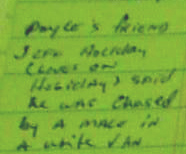 Doyle's friend
Jeff Holiday
(Lives on
Holiday) said
he was chased
by a male in
a white van